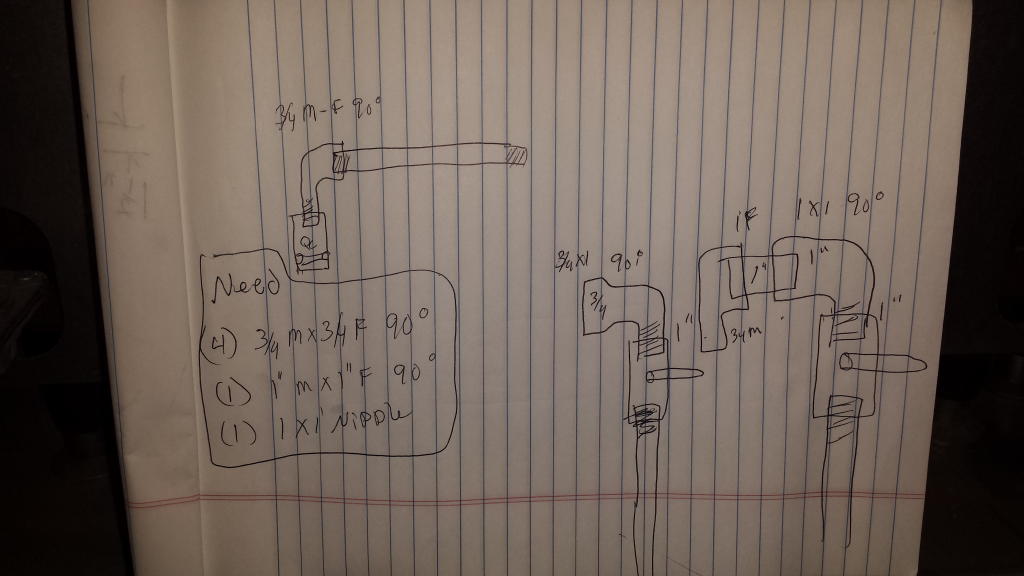 3/4 M-F 90°
Need
(4) 3/4 m x 3/4 F 90°
(1) 1" m x 1" F 90°
(1) 1 x 1 Nipple
3/4 x 1 90°
3/4
1"
1F
1"
3/4 m
1 x 1 90°
1"
1"